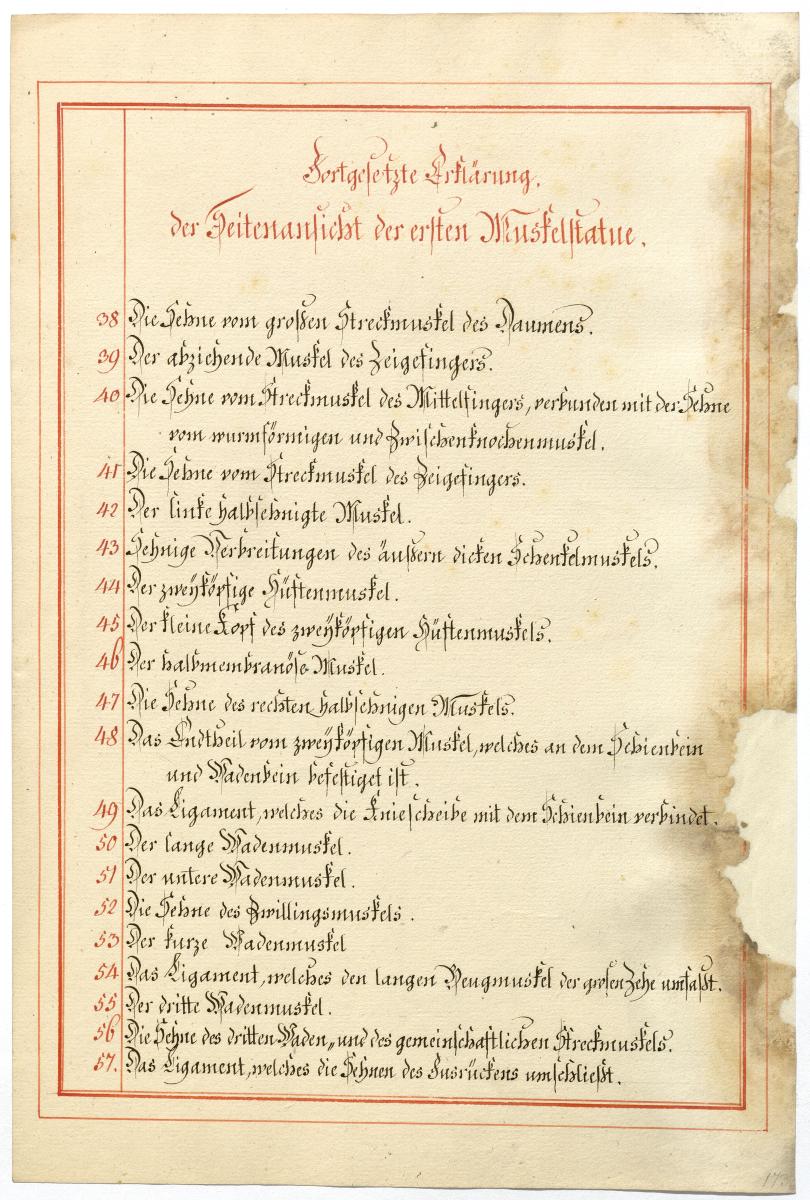 Fortgesetzte Erklärung.
der Seitenansicht der ersten Muskelstatue.
38 Die Sehne vom großen Streckmuskel des Daumens.
39 Der abziehende Muskel des Zeigefingers.
40 Die Sehne vom Streckmuskel des Mittelfingers, verbunden mit der Sehne
vom wurmförmigen und Zwischenknochenmuskel.
41 Die Sehne vom Streckmuskel des Zeigefingers.
42 Der linke halbsehnigte Muskel.
43 Sehnige Verbreitungen des äußern dicken Schenkelmuskels.
44 Der zweyköpfige Hüftenmuskel.
45 Der kleine Kopf des zweyköpfigen Hüftenmuskels.
46 Der halbmembranöse Muskel.
47 Die Sehne des rechten halbsehnigen Muskels.
48 Das Endtheil vom zweyköpfigen Muskel, welches an dem Schienbein
und Wadenbein befestiget ist.
49 Das Ligament, welches die Kniescheibe mit dem Schienbein verbindet.
50 Der lange Wadenmuskel.
51 Der untere Wadenmuskel.
52 Die Sehne des Zwillingsmuskels.
53 Der kurze Wadenmuskel
54 Das Ligament, welches den langen Beugmuskel der grosen Zehe umfaßt.
55 Der dritte Wadenmuskel.
56 Die Sehne des dritten Waden„ und des gemeinschaftlichen Streckmuskels.
57. Das Ligament, welches die Sehnen des Fusrückens umschließt.